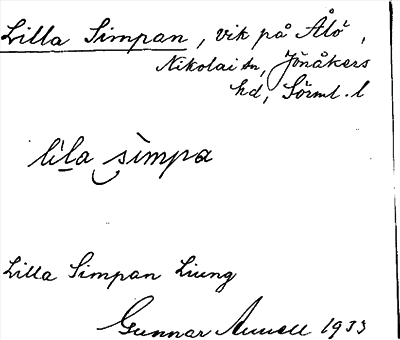 Lilla Simpan, vik på Ålö,
Nikolai sn, Jönåkers
hd, Sörml. l
lìla sìmpa
Lilla Simpan Liung
Gunnar 1933